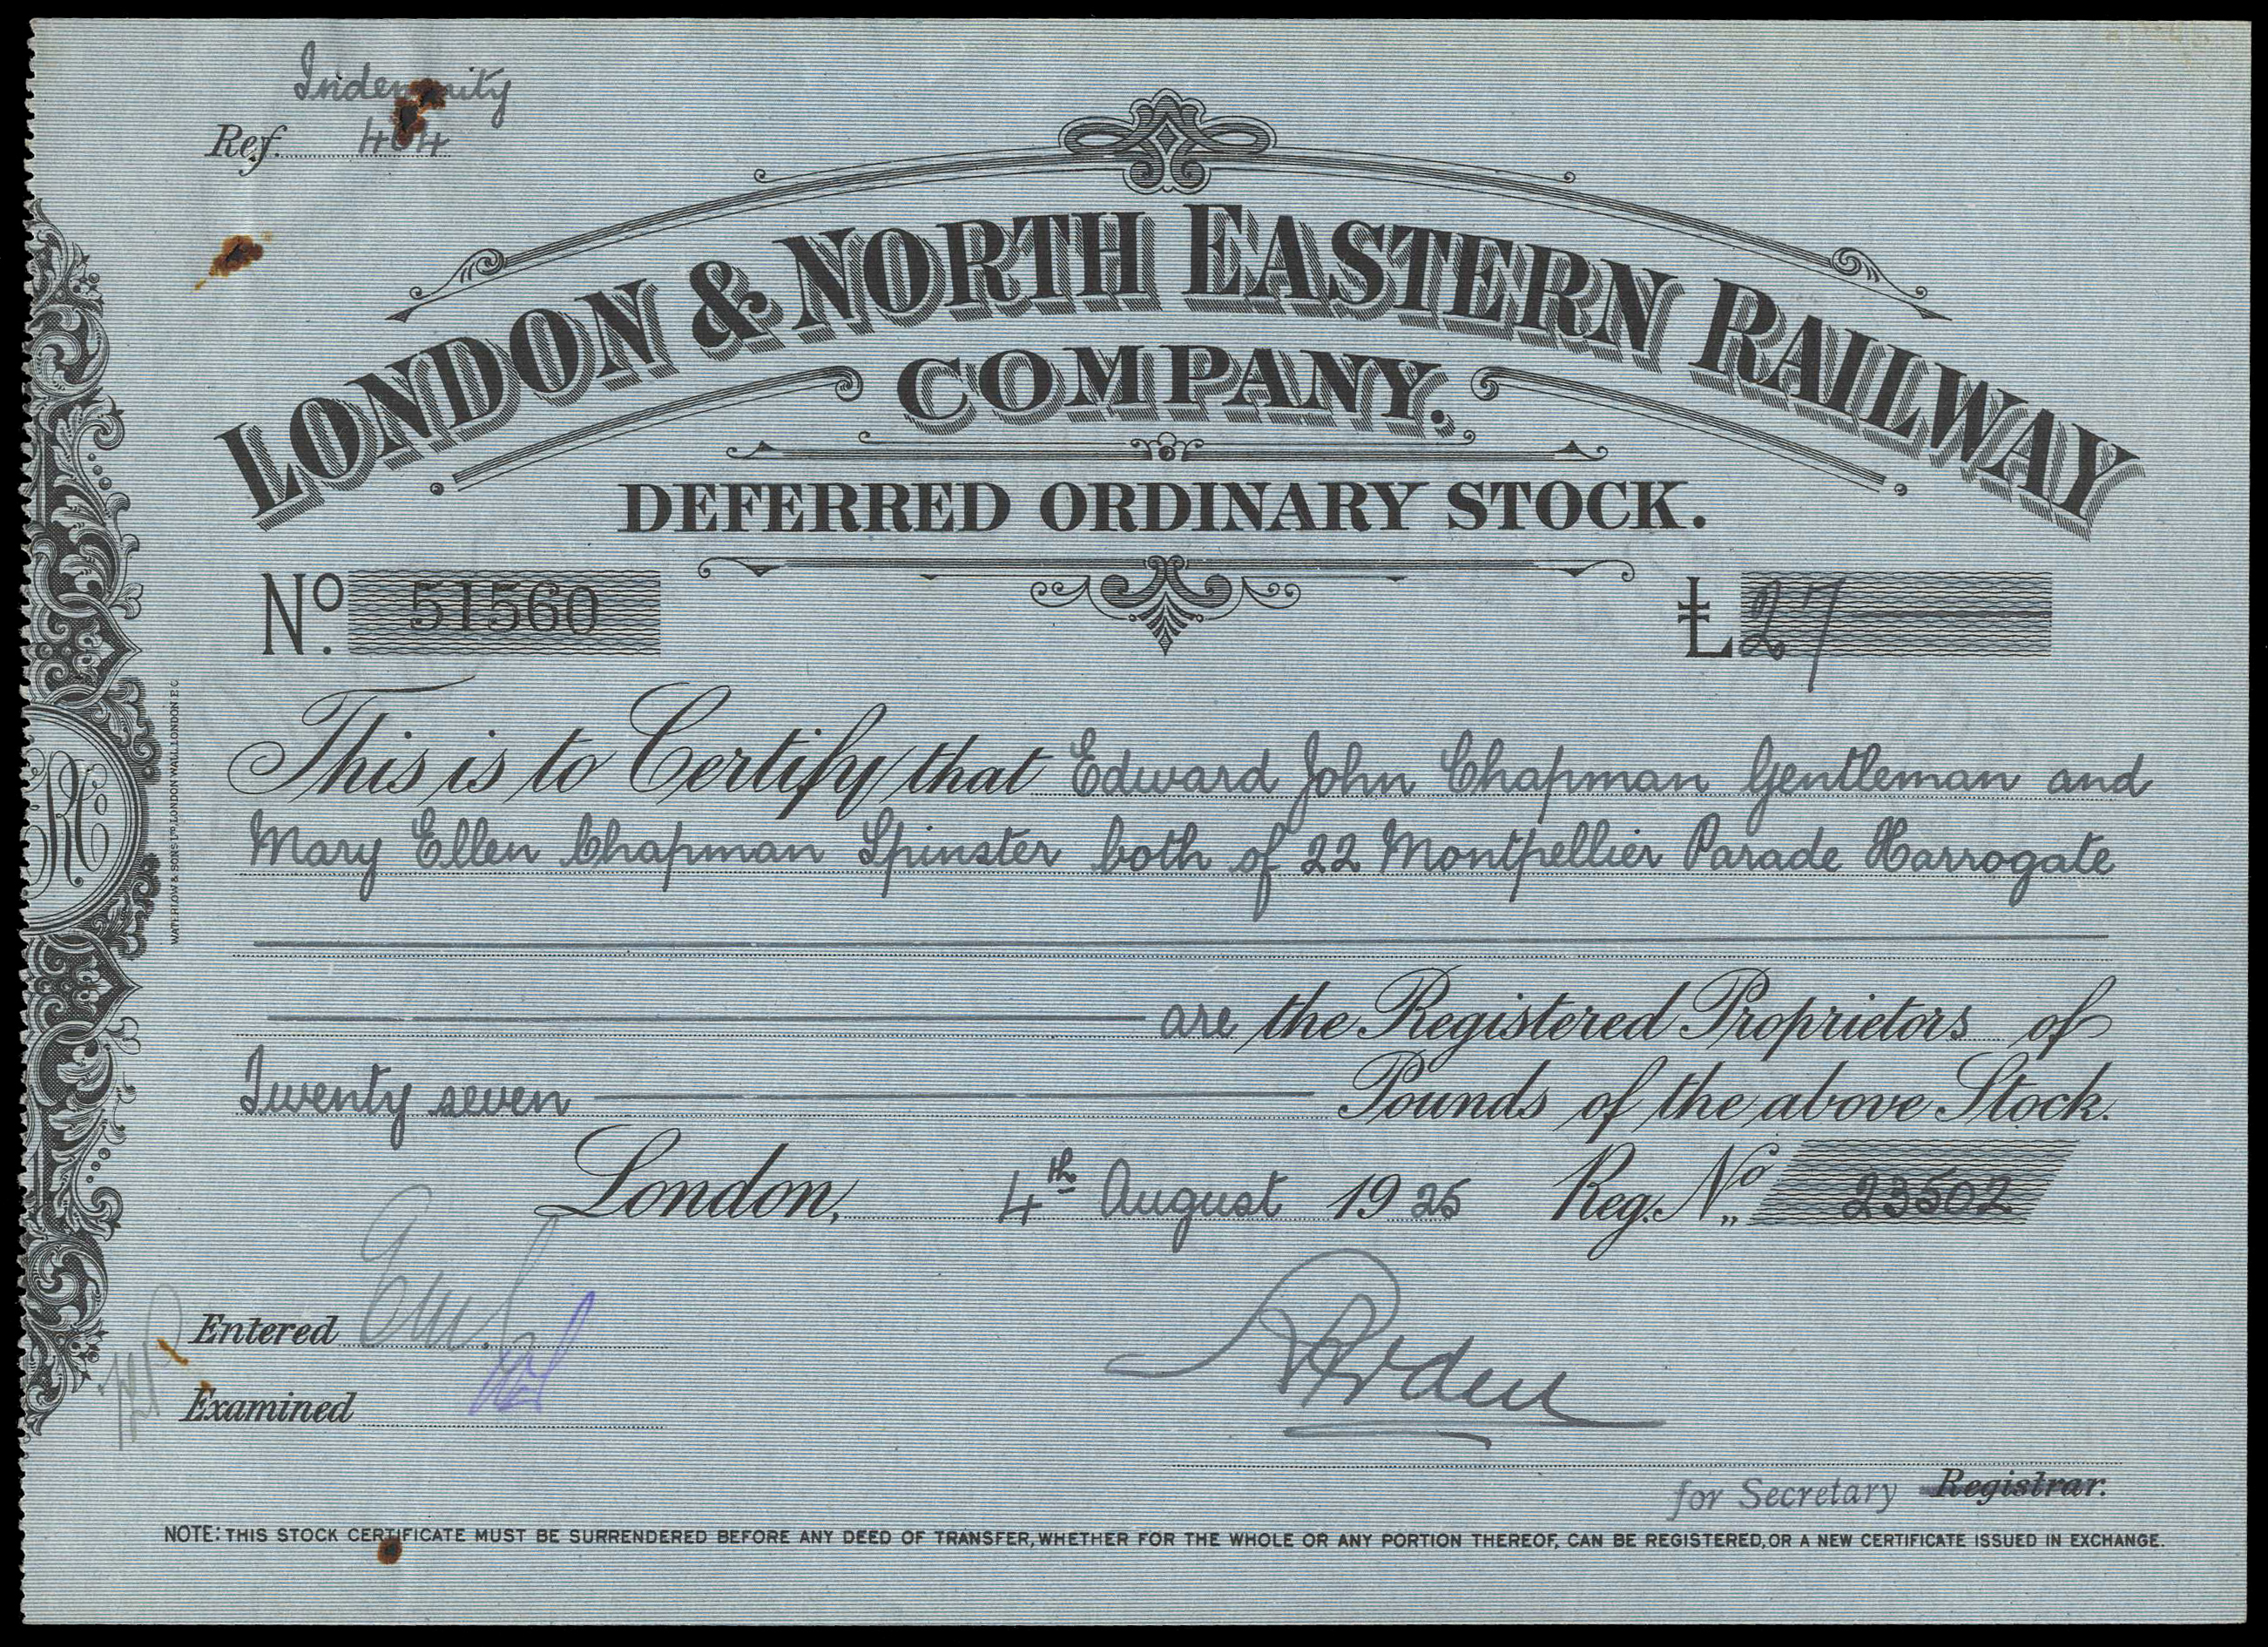 Indemnity
Ref. 464
LONDON & NORTH EASTERN RAILWAY
COMPANY.
DEFERRED ORDINARY STOCK.
No. 51560 £27
This is to Certify that Edward John Chapman Gentleman and
Mary Ellen Chapman Spinster both of 22 Montpellier Parade Harrogate
are the Registered Proprietors of
Twenty seven Pounds of the above Stock.
London, 4th August 1925 Reg. No. 23502
Entered
Examined
for Secretary Registrar.
NOTE: THIS STOCK CERTIFICATE MUST BE SURRENDERED BEFORE ANY DEED OF TRANSFER, WHETHER FOR THE WHOLE OR ANY PORTION THEREOF, CAN BE REGISTERED, OR A NEW CERTIFICATE ISSUED IN EXCHANGE.
WATERLOW & SONS LTD LONDON WALL, LONDON E.C.